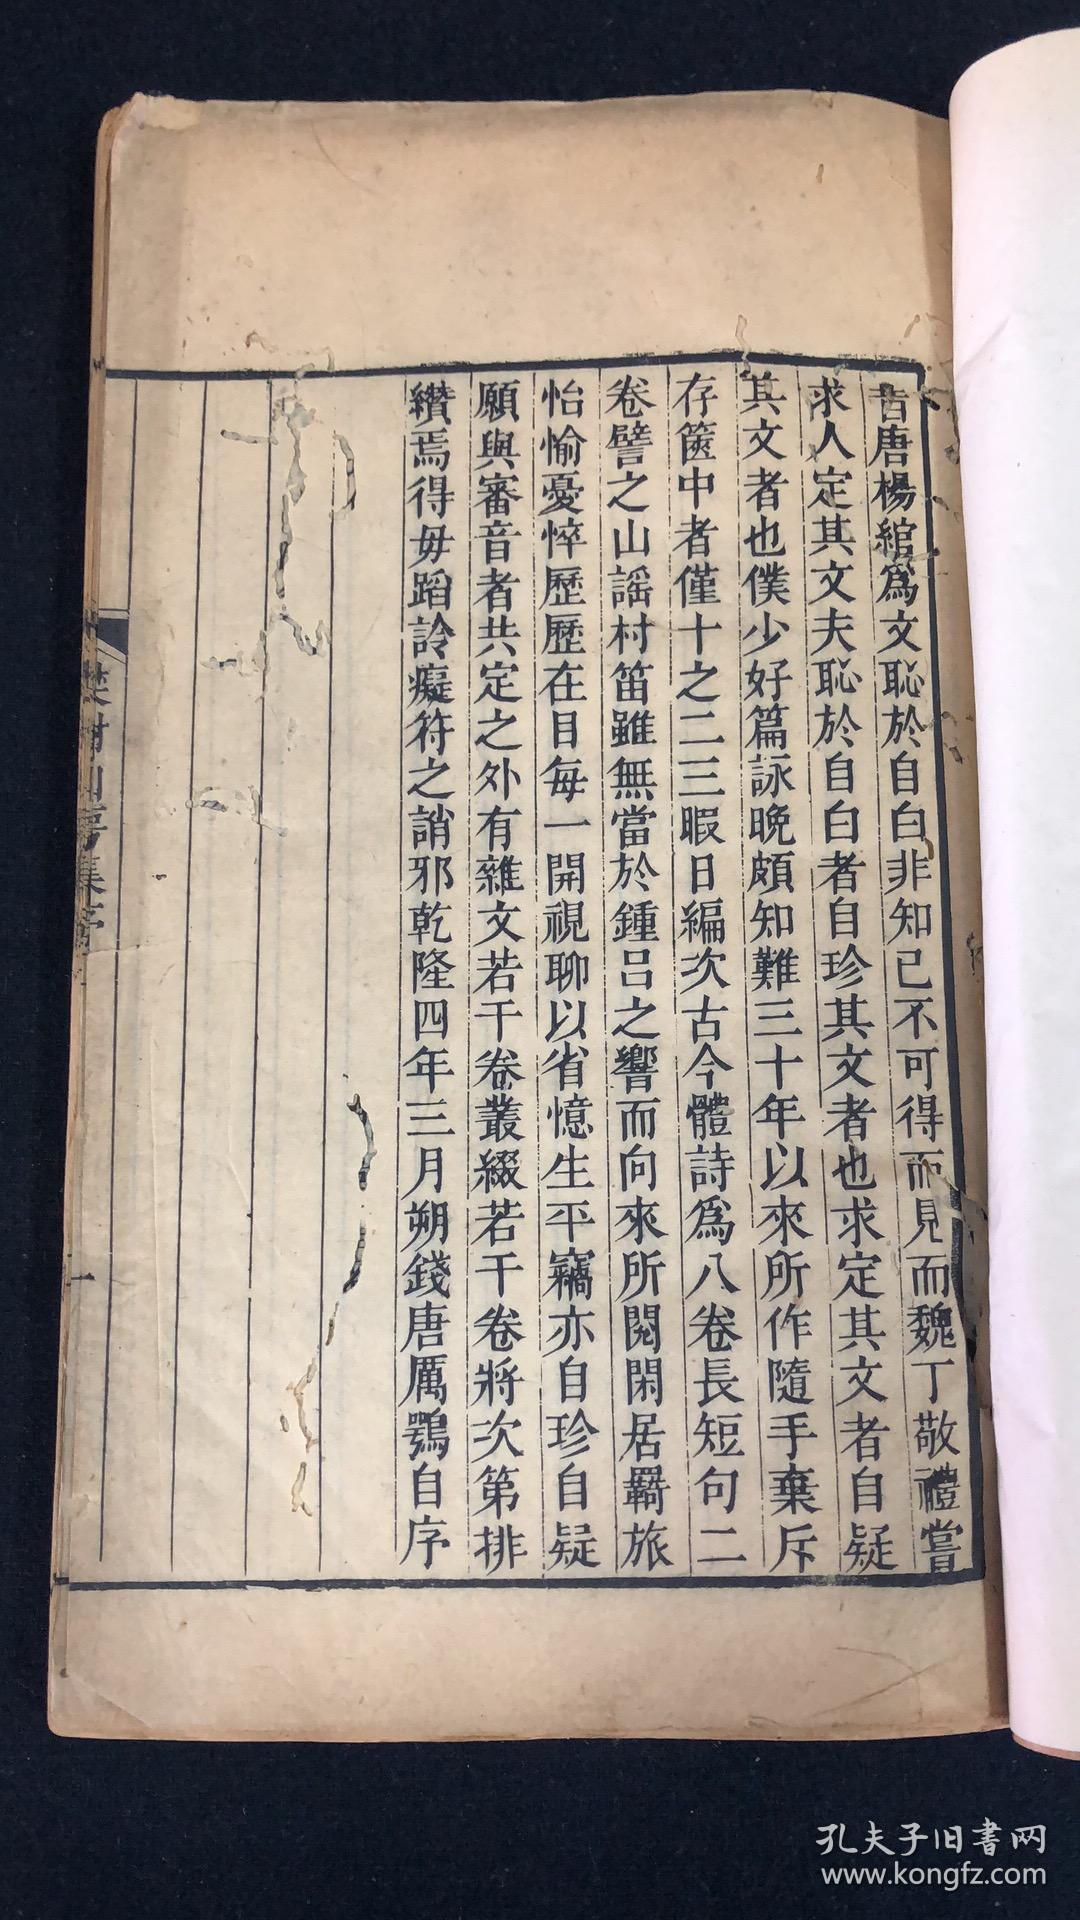 昔唐楊綰爲文恥於自白非知己不可得而見而魏丁敬禮嘗
求人定其文夫恥於自白者自珍其文者也求定其文者自疑
其文者也僕少好篇詠晚頗知難三十年以來所作隨手棄斥
存篋中者僅十之二三暇日編次古今體詩爲八卷長短句二
卷譬之山謡村笛雖無當於鍾吕之響而向來所閱閑居羇旅
怡愉憂悴歷歷在目每一開視聊以省憶生平竊亦自珍自疑
願與審音者共定之外有雜文若干卷叢綴若干卷將次第排
纘焉得毋蹈詅癡符之誚邪乾隆四年三月朔錢唐厲鶚自序
樊榭山房集序
一
孔夫子旧書网
www.kongfz.com